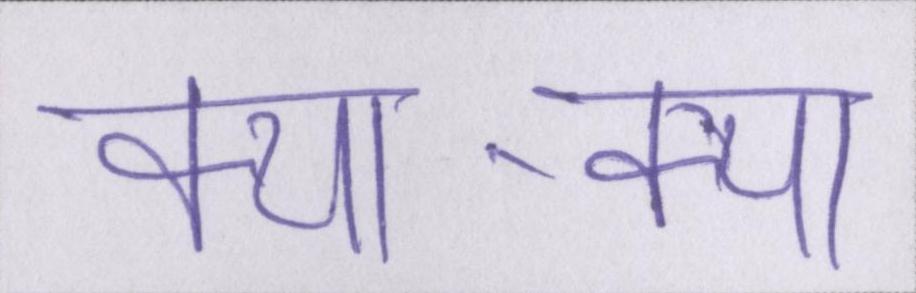 क्या-क्या